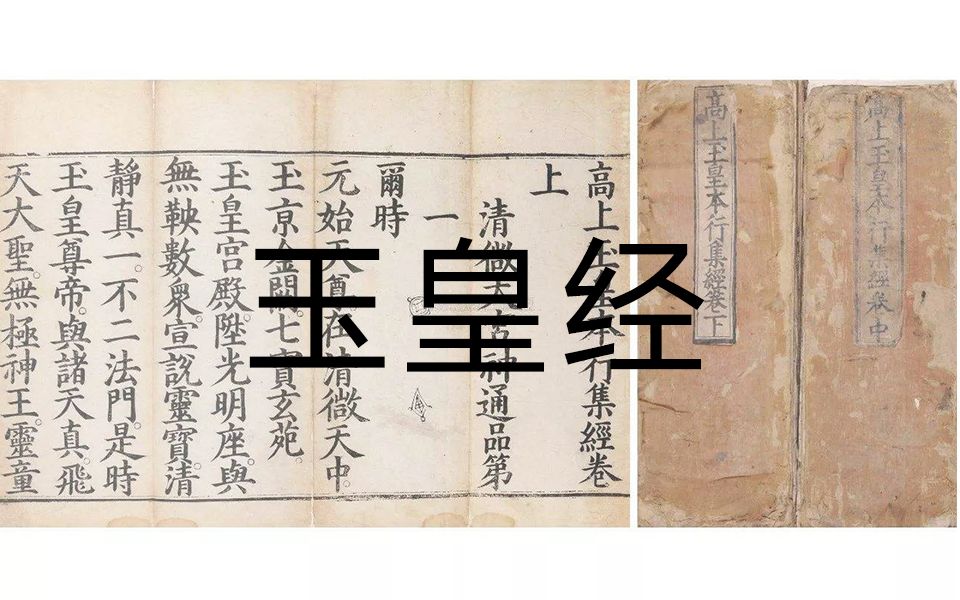 玉皇经
高上玉皇本行集經卷
上
清微天宮神通品第
一
爾時
元始天尊。在清微天中。
玉亰金闕。七寶玄苑。
玉皇宮殿。陞光明座。與
無鞅數衆。宣說靈寶清
靜真一。不二法門。是時
玉皇尊帝。與諸天真。飛
天大聖。無極神王。靈童
高上玉皇本行集經卷下
高上玉皇本行集經卷中